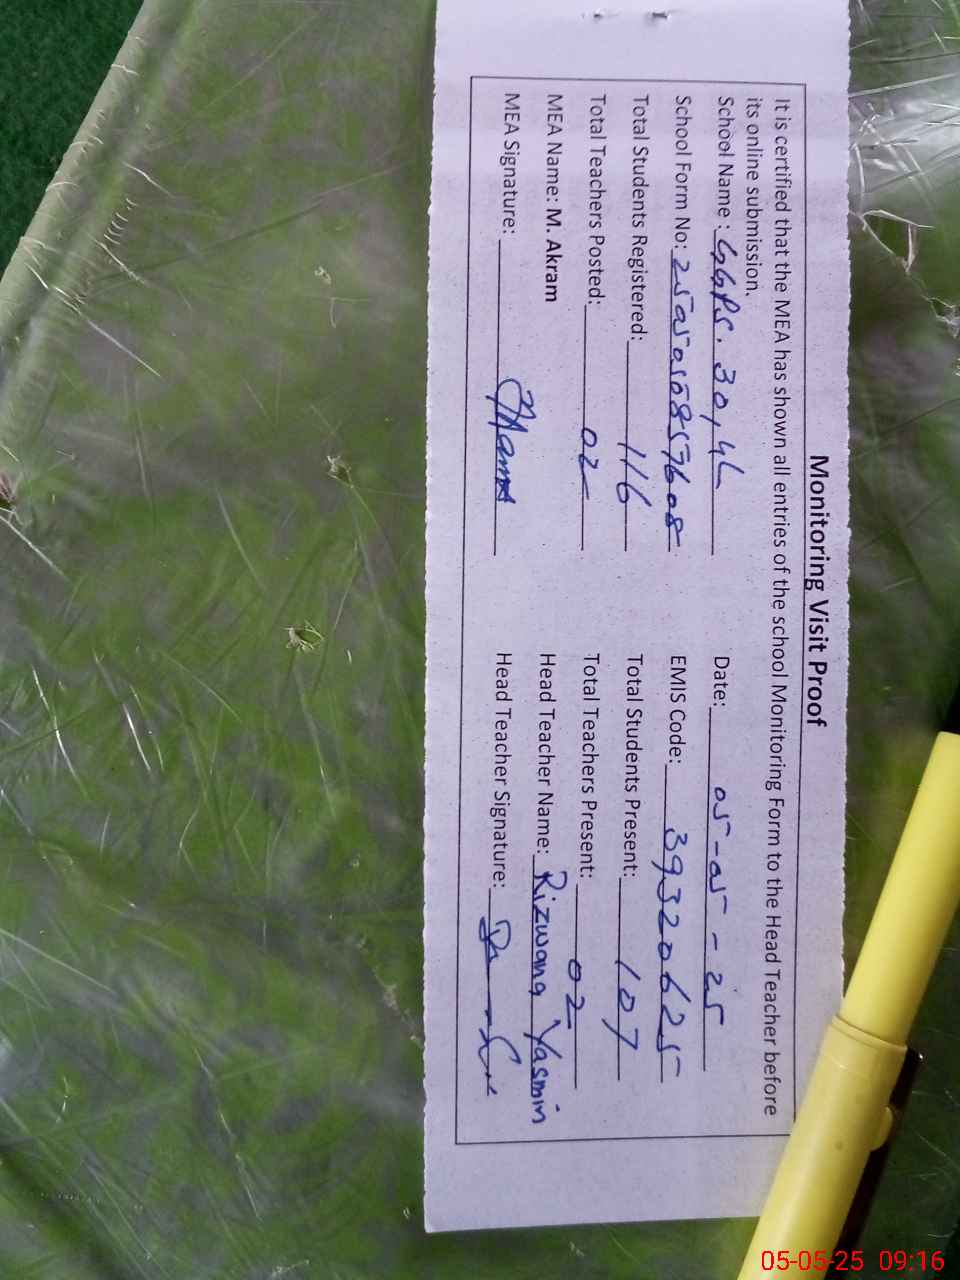 Monitoring Visit Proof
It is certified that the MEA has shown all entries of the school Monitoring Form to the Head Teacher before
its online submission.
School Name : GGPS. 30/4L Date: 05-05-25
School Form No: EMIS Code: 39320625
Total Students Registered: 116 Total Students Present: 107
Total Teachers Posted: 02 Total Teachers Present: 02
MEA Name: M. Akram Head Teacher Name: Rizwana Yasmin
MEA Signature: Head Teacher Signature:
05-05-25 09:16